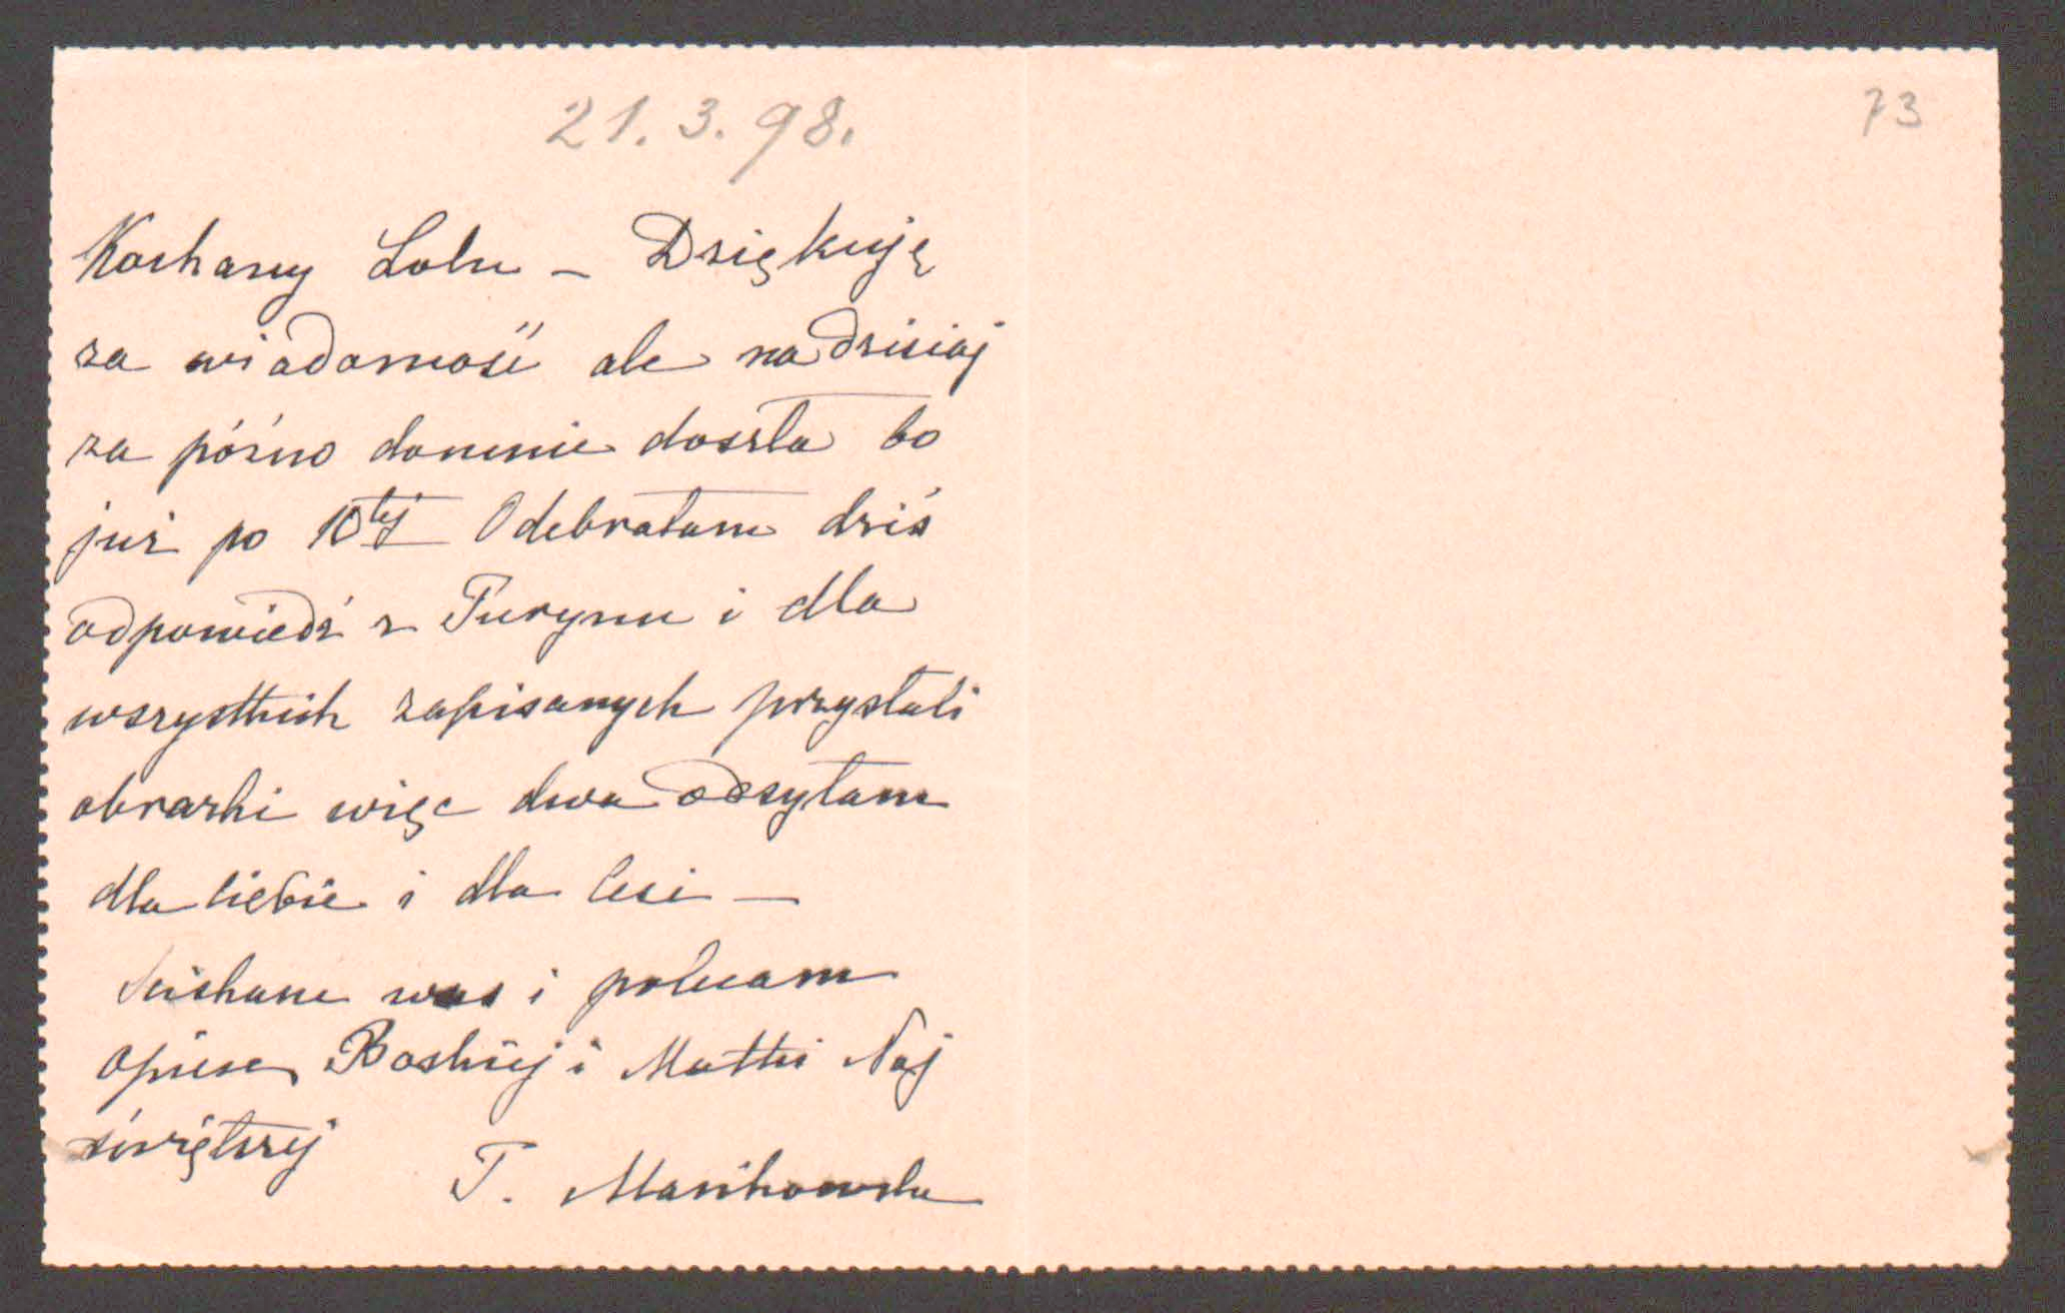 21. 3. 98.
73
Kochany Lolu – Dziękuję
za wiadomość ale na dzisiaj
za późno do mnie doszła bo
już po 10tej Odebrałam dziś
odpowiedź z Turynu i dla
wszystkich zapisanych przysłali
obrazki więc dwa odsyłam
dla Ciebie i dla Cesi —
Ściskam was i polecam
opiece Boskiej i Matki Naj
świętszej
T. Mańkowska